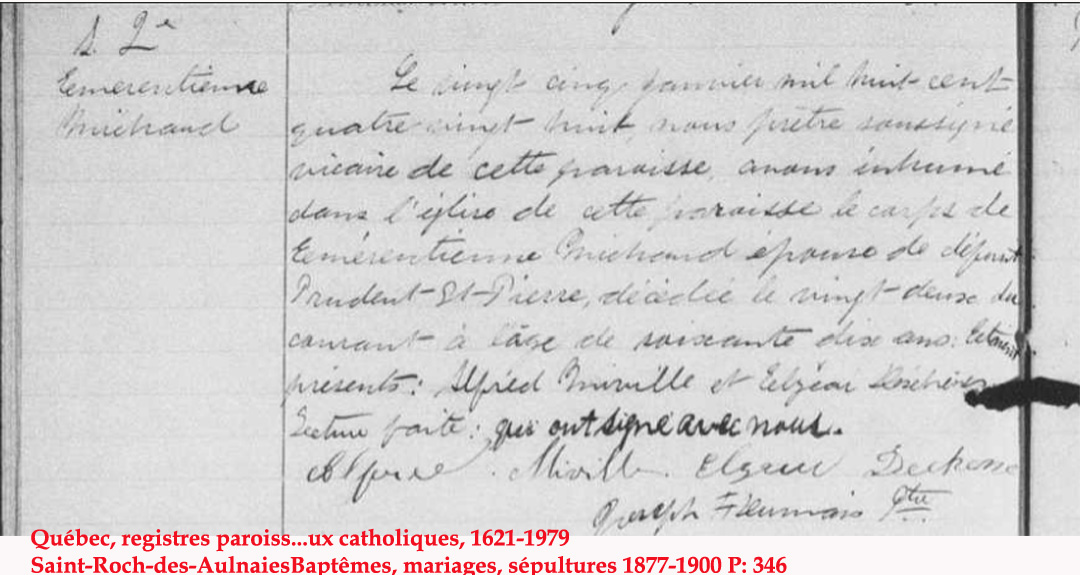 S. 2e
Eemérentienne
Michaud
Le vingt cinq janvier mil huit cent
quatre vingt huit, nous prêtre soussigné
vicaire de cette paroisse, avons inhumé
dans l'église de cette paroisse le corps de
Eemérentienne Michaud épouse de défunt
Prudent St-Pierre, décédée le vingt-deux du
courant à l'âge de soixante dix ans. Etaient
présents: Alfred Miville et Elzéar Deschênes
Lecture faite: qui ont signé avec nous.
Alfred Miville Elzear
Joseph Ptre
Québec, registres paroiss...ux catholiques, 1621-1979
Saint-Roch-des-AulnaiesBaptêmes, mariages, sépultures 1877-1900 P: 346